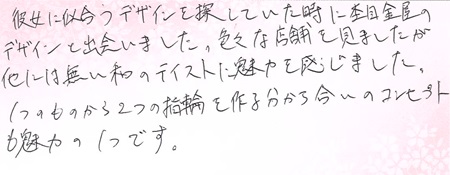 彼女に似合うデザインを探していた時に杢目金屋の
デザインと出会いました。色々な店舗を見ましたが
他には無い和のテイストに魅力を感じました。
1つのものから2つの指輪を作る分かち合いのコンセプト
も魅力の1つです。